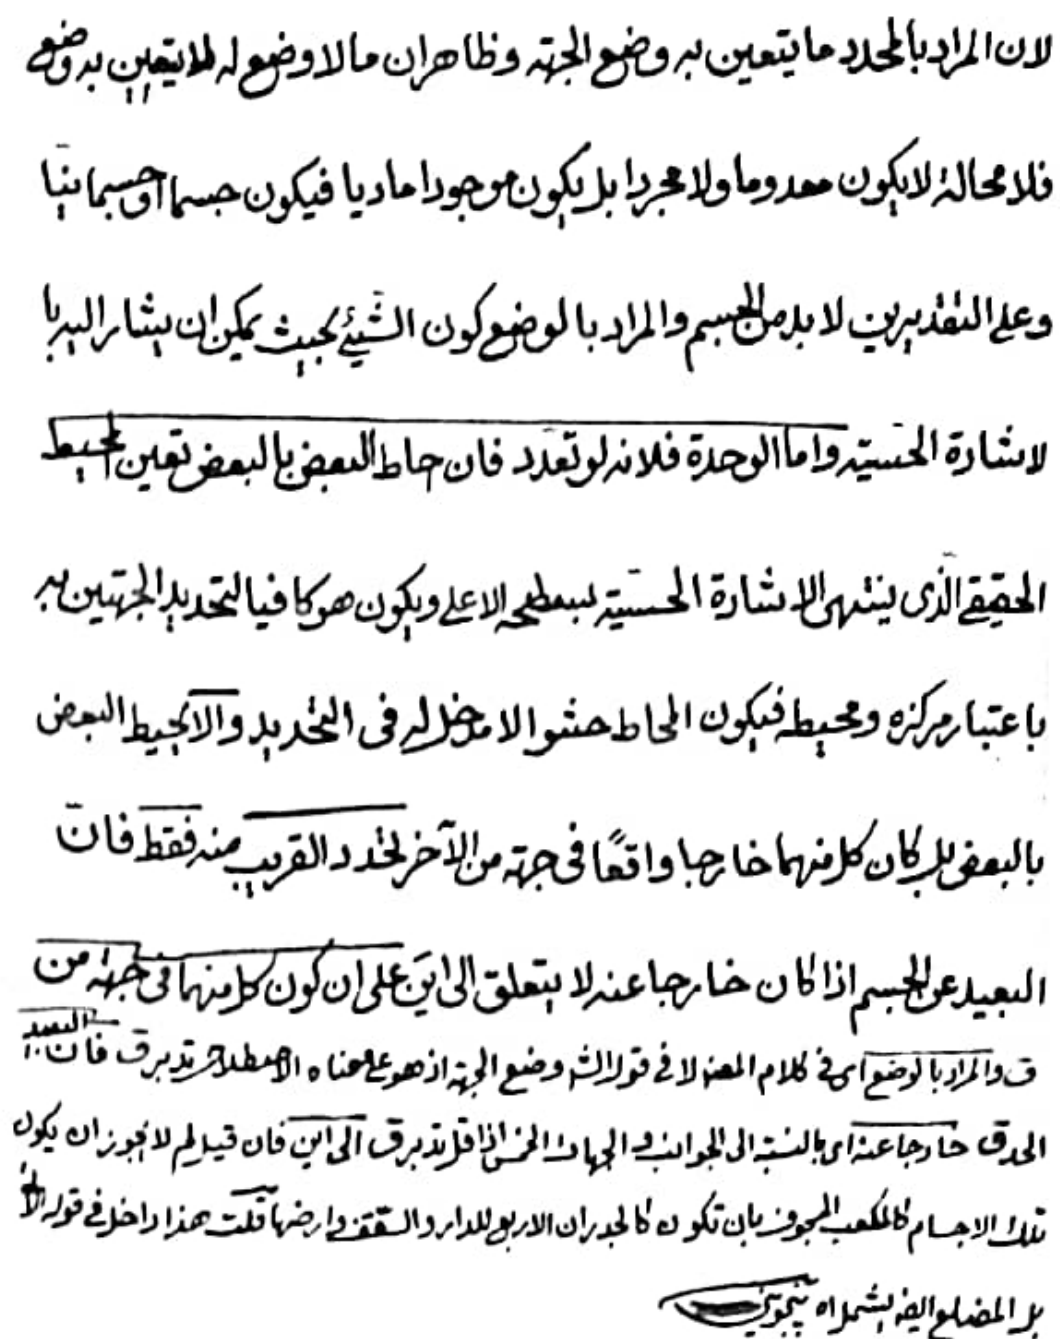 لان المراد بالمحدد ما يتعين به وضع الجهة وظاهر ان مالا وضع له لا يتعين به وضع
فلا محالة لا يكون معدوما ولا مجردا بل يكون موجودا ماديا فيكون جسما او جسمانيا
وعلى التقديرين لا بد من الجسم والمراد بالوضع كون الشيئ بحيث يمكن ان يشار اليه با
لاشارة الحسّية واما الوحدة فلانه لو تعدد فان احاط البعض بالبعض تعين المحيط
الحقيقے الّذى ينتهى الاشارة الحسّية بسطحه الاعلے ويكون هو كافيا لتحديد الجهتين به
باعتبار مركزه ومحيطه فيكون المحاط حشوا لا مدخل له فى التحديد والا يحيط البعض
بالبعض بل كان كل منهما خارجا واقعًا فى جهة من الآخر تحدد القريب منه فقط فانّ
البعيد عن الجسم اذا كان خارجا عنه لا يتعلق الى اين على ان كون كل منهما فى جهة من
ق والمراد بالوضع اى فى كلام المصنف لا فى قوله وضع الجهة اذ هو على معناه الاصطلاحى تدبر ق فان البعيد
الخ ق خارجا عنه اى بالنسبة الى الجوانب و الجهات تدبر ق الى اين فان قيل لم لا يجوز ان يكون
تلك الاجسام كالمكعب المجوف بان تكون كالجدران الاربع للدار والسقف وارضها قلت هذا داخل فى قوله
بل المضلع ايضا يشمله اه